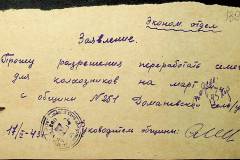 Эконом отдел
Заявление.
Прошу разрешения переработать семе
для колхозников на март
с общины №251 Доманевской
17/II-43г. Руководитель общины: